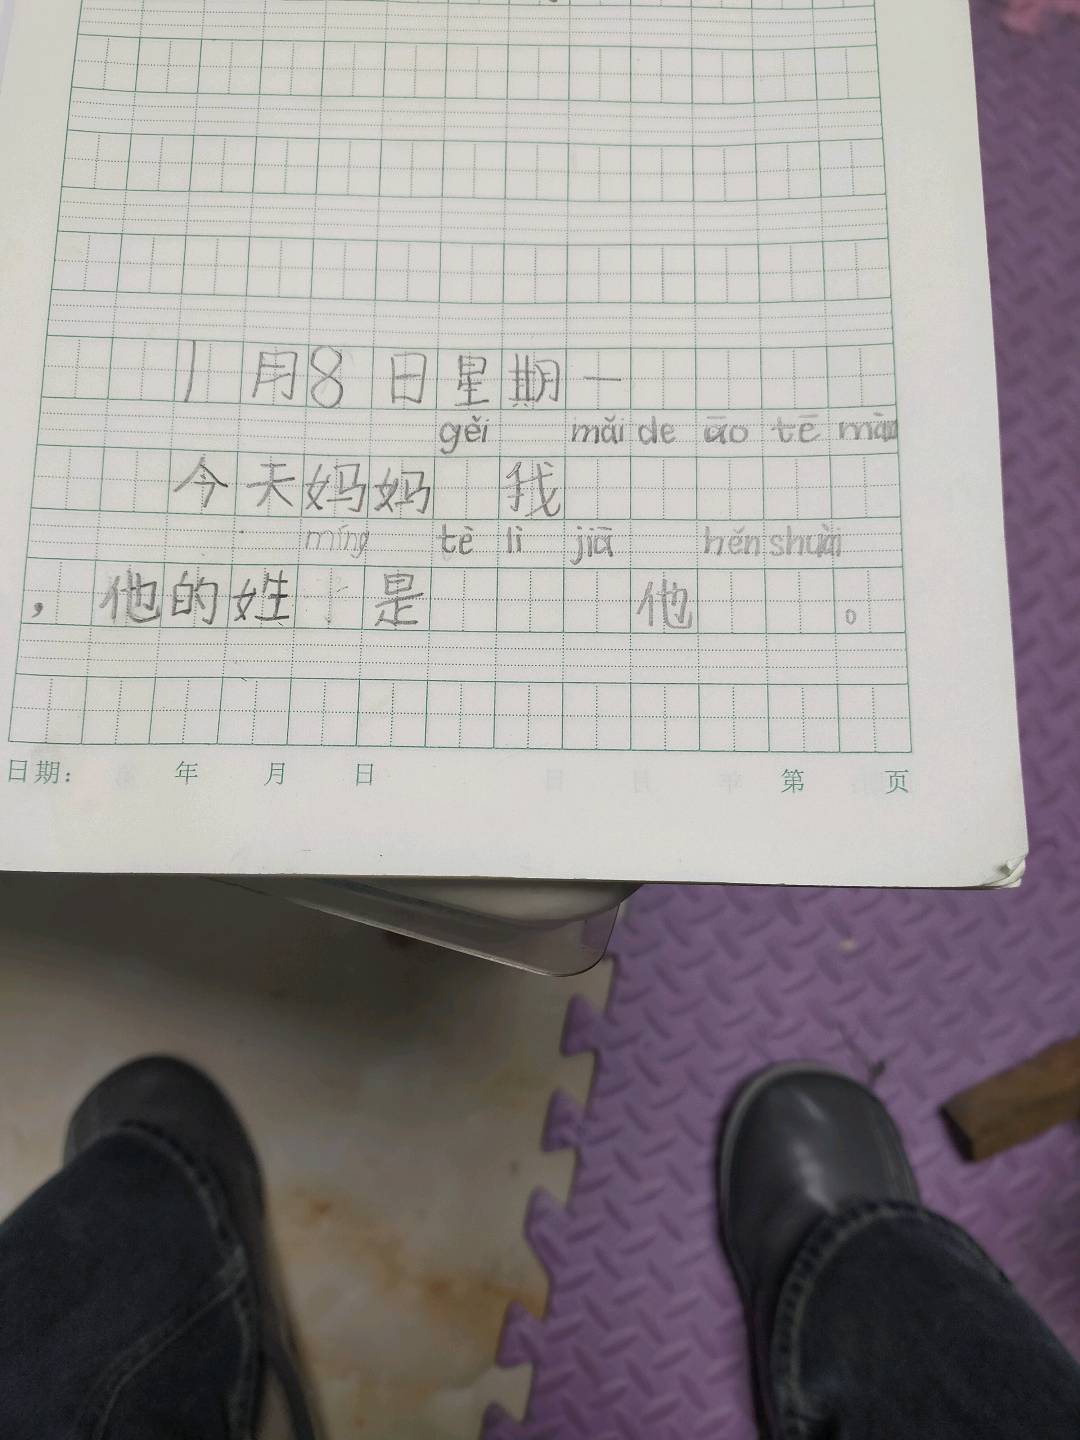 1月8日星期一
gěi mǎi de āo tē màn
今天妈妈 我
míng tè lì jiā hěn shuài
，他的姓 是 他 。
日期： 年 月 日 第 页